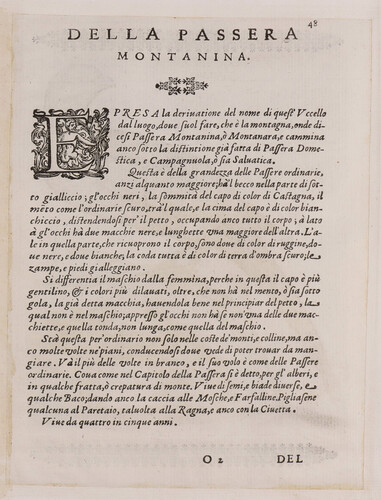 48
DELLA PASSERA
MONTANINA.
E PRESA la deriuatione del nome di quest' Vccello
dal luogo, doue suol fare, che è la montagna, onde di-
cesi Passera Montanina, ò Montanara, e cammina
anco sotto la distintione già fatta di Passera Dome-
stica, e Campagnuola, ò sia Saluatica.
Questa è della grandezza delle Passere ordinarie,
anzi alquanto maggiore; hà l becco nella parte di sot-
to gialliccio; gl'occhi neri, la sommità del capo di color di Castagna, il
mèto come l'ordinarie scuro, trà l quale, e la cima del capo è di color bian-
chiccio, distendendosi per il petto, occupando anco tutto il corpo; à lato
à gl'occhi hà due macchie nere, e lunghette vna maggiore dell'altra. L'a-
le in quella parte, che ricuoprono il corpo, sono doue di color di ruggine, do-
ue nere, e doue bianche, la coda tutta è di color di terra d'ombra scuro; le
zampe, e piedi gialleggiano.
Si differentia il maschio dalla femmina, perche in questa il capo è più
gentilino, & i colori più dilauati, oltre, che non hà nel mento, ò sia sotto
gola, la già detta macchia, hauendola bene nel principiar del petto, la
qual non è nel maschio; appresso gl'occhi non hà se nō vna delle due mac-
chiette, e quella tonda, non lunga, come quella del maschio.
Stà questa per ordinario non solo nelle coste de' monti, e colline, ma an-
co molte volte ne' piani, conducendosi doue vede di poter trouar da man-
giare. Và il più delle volte in branco, e il suo volo è come delle Passere
ordinarie. Coua come nel Capitolo della Passera si è detto, per gl' alberi, e
in qualche fratta, ò crepatura di monte. Viue di semi, e biade diuerse, e
qualche Baco; dando anco la caccia alle Mosche, e Farfalline. Pigliasene
qualcuna al Paretaio, taluolta alla Ragna, e anco con la Ciuetta.
Viue da quattro in cinque anni.
O 2 DEL